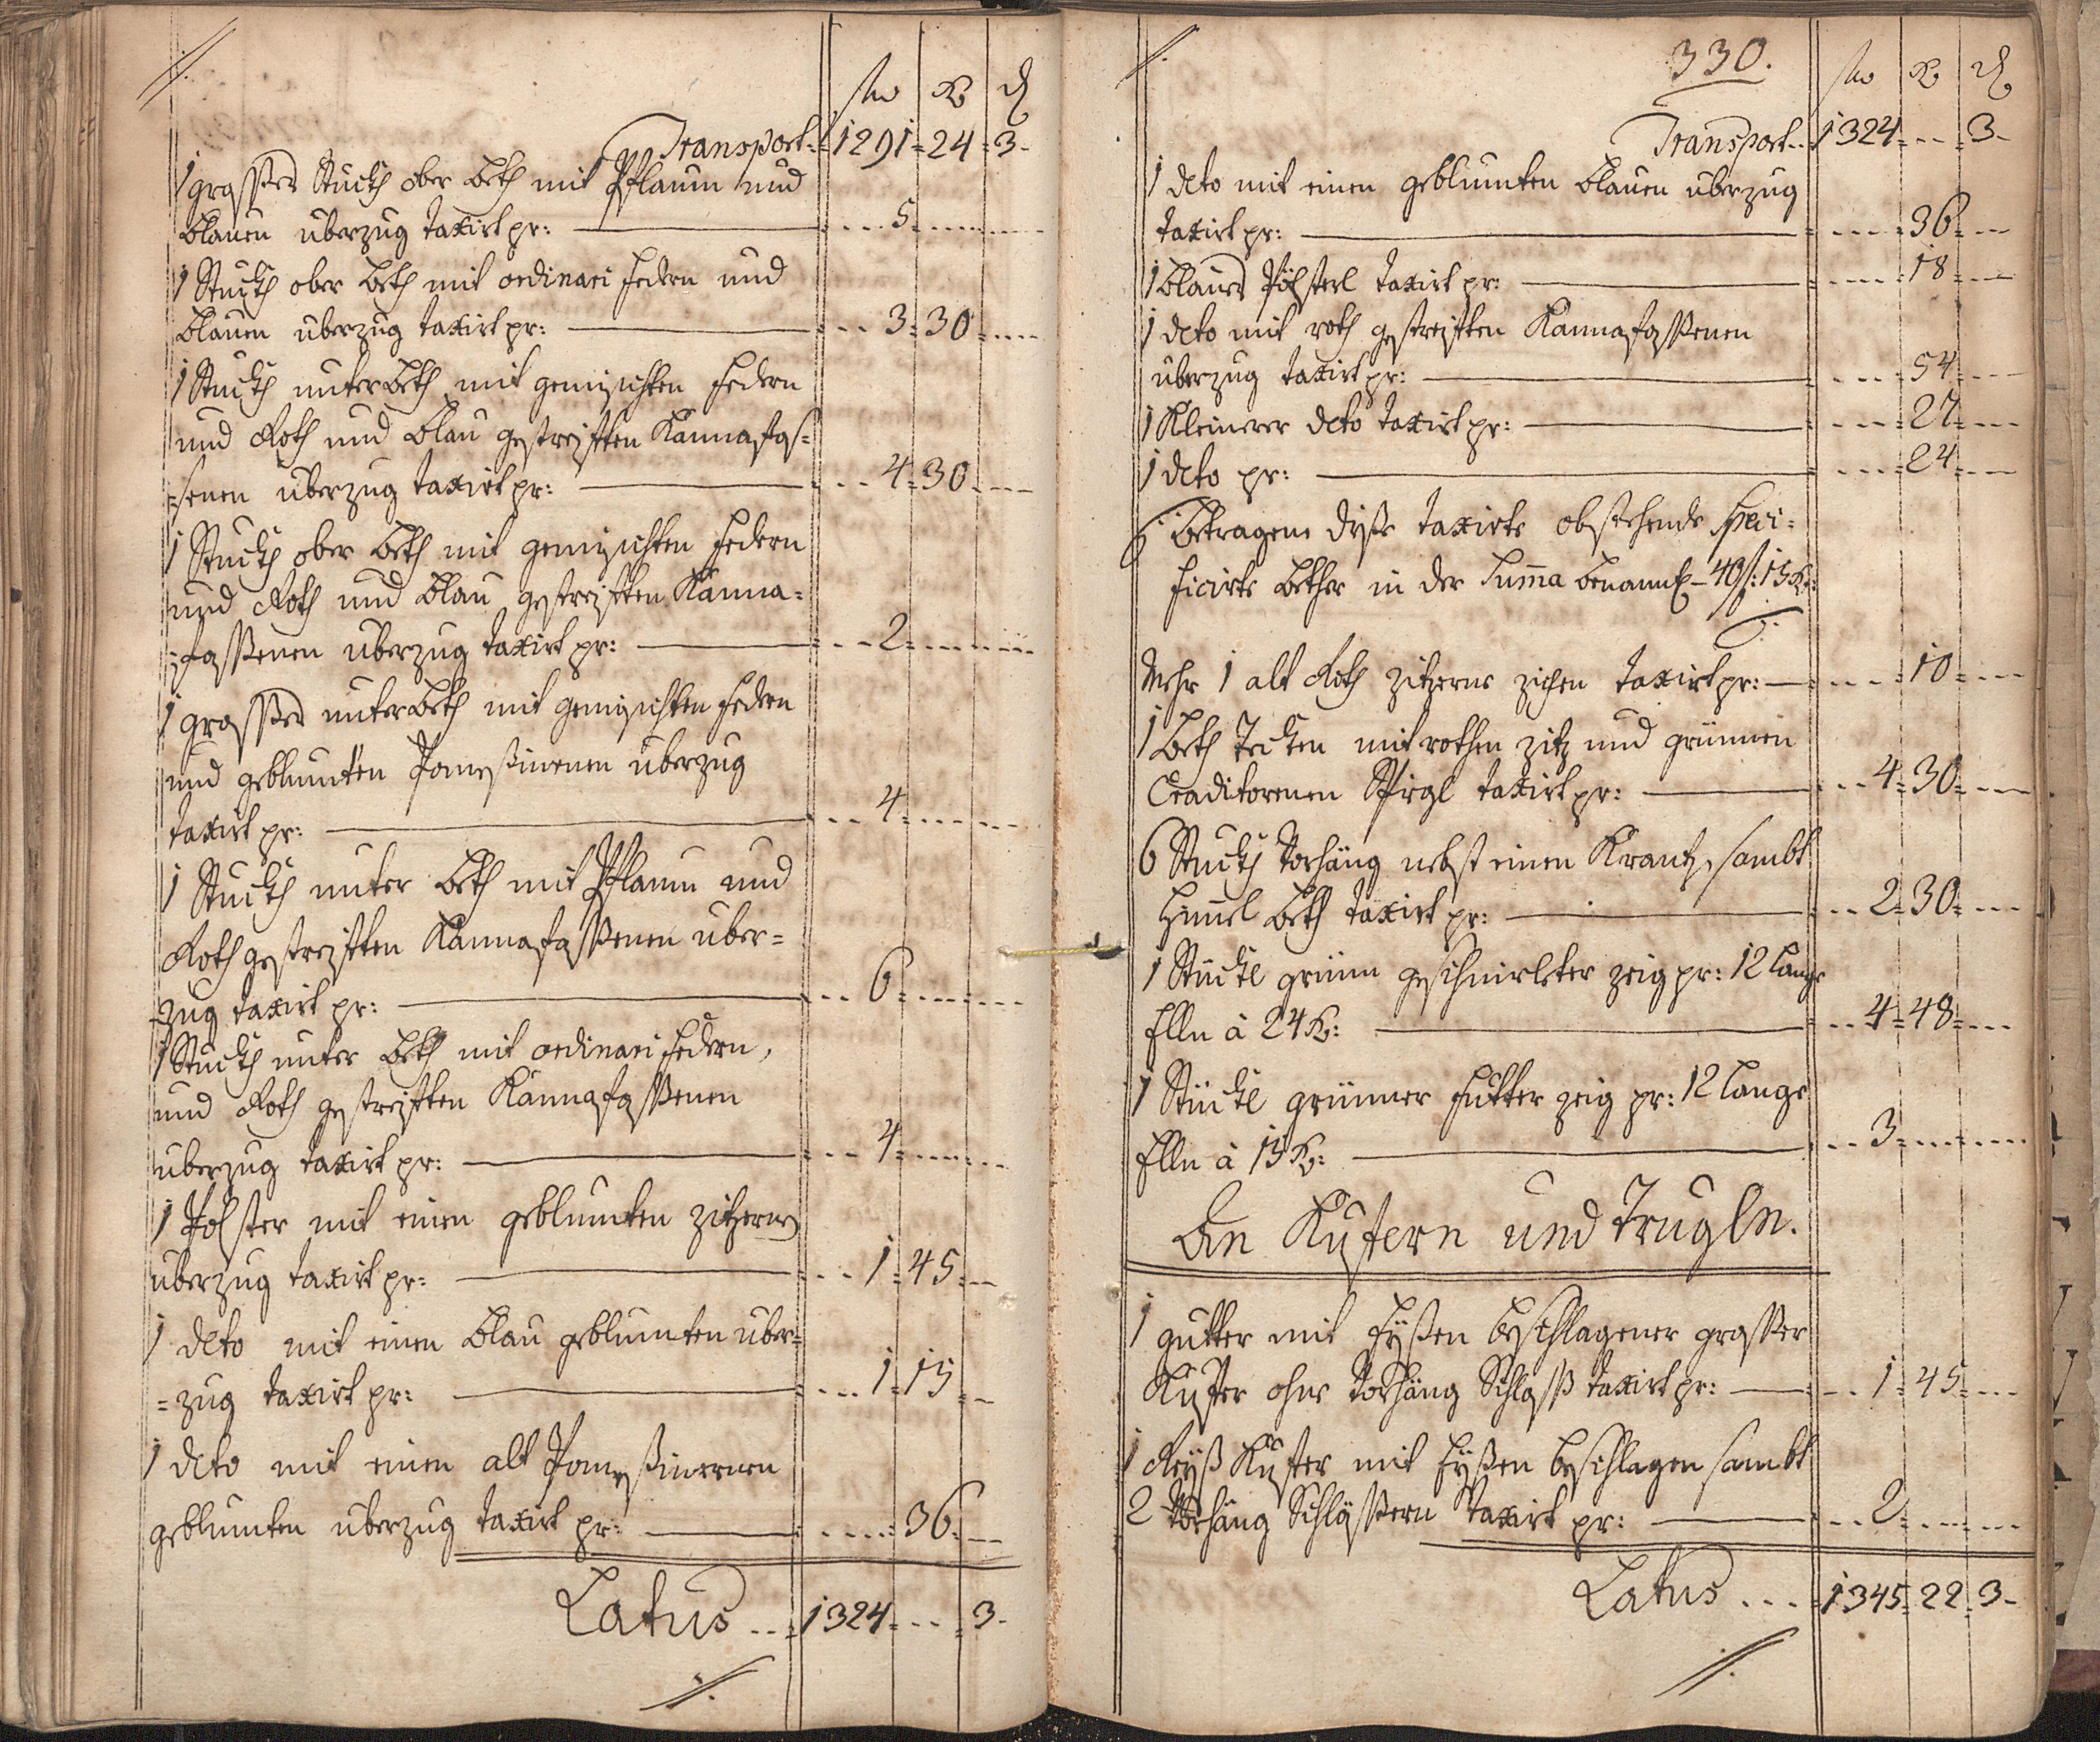 ./.
fl Kr d
Transport.. 1291 = 24 = 3 -
1 grosses Stuckh ober beth mit Pflaum und
blauen uberzug taxirt pr: — 5
1 Stuckh ober beth mit ordinari federn und
blauen uberzug taxirt pr: — 3 = 30
1 Stuckh unterbeth mit gemischten federn
und Roth und blau gestreiften Kannafas=
=senen uberzug taxirt pr: — 4 = 30
1 Stuckh ober beth mit gemischten federn
und Roth und blau gestreiften Kanna=
=fassenen uberzug taxirt pr: — 2
1 grosses unterbeth mit gemischten federn
und geblumten uberzug
taxirt pr: — 4
1 Stuckh unter beth mit Pflaum und
Roth gestreiften Kannafassenen uber=
=zug taxirt pr: — 6
1 Stuckh unter beth mit ordinari federn,
und Roth gestreiften Kannafassenen
uberzug taxirt pr: — 4
1 Polster mit einen geblumten zizernen
uberzug taxirt pr: — 1 = 45
1 deto mit einen blau geblumten uber=
=zug taxirt pr: — 1 = 15
1 deto mit einen alt
geblumten uberzug taxirt pr: — 36
Latus ... 1324 = - - = 3 -
./.
./.
330.
fl Kr d
Transport.. 1324 - - - 3 -
1 deto mit einen geblumten blauen uberzug
taxirt pr: — 36
1 blaues Pölsterl taxirt pr: — 18
1 deto mit roth gestreiften Kannafassenen
uberzug taxirt pr: — 54
1 Kleinerer deto taxirt pr: — 27
1 deto pr: — 24
betragene dise taxirte obstehende speci=
ficirte bether in der Suma benantl - 40 f: 15 Kr:
Mehr 1 alt Roth zizerne zichen taxirt pr: — 10
1 beth Decken mit rothen ziz und grünnen
Craditorenen Spigl taxirt pr: — 4 = 30
6 Stuckh Vorhäng nebst einen Krantz, sambt
Himel beth taxirt pr: — 2 = 30
1 Stückl grünn geschnirleter zeig pr: 12 lange
Elln à 24 Kr: — 4 = 48
1 Stückl grünner futter zeig pr: 12 lange
Elln à 15 Kr: — 3
An Küstern und Trugln.
1 gutter mit Eyßen beschlagener grosser
Kuster ohne Vorhäng Schloß taxirt pr: — 1 = 45
1 Reyß Kuster mit Eyßen beschlagen sambt
2 Vorhäng Schlössern taxirt pr: — 2
Latus ... 1345 = 22 = 3 -
./.